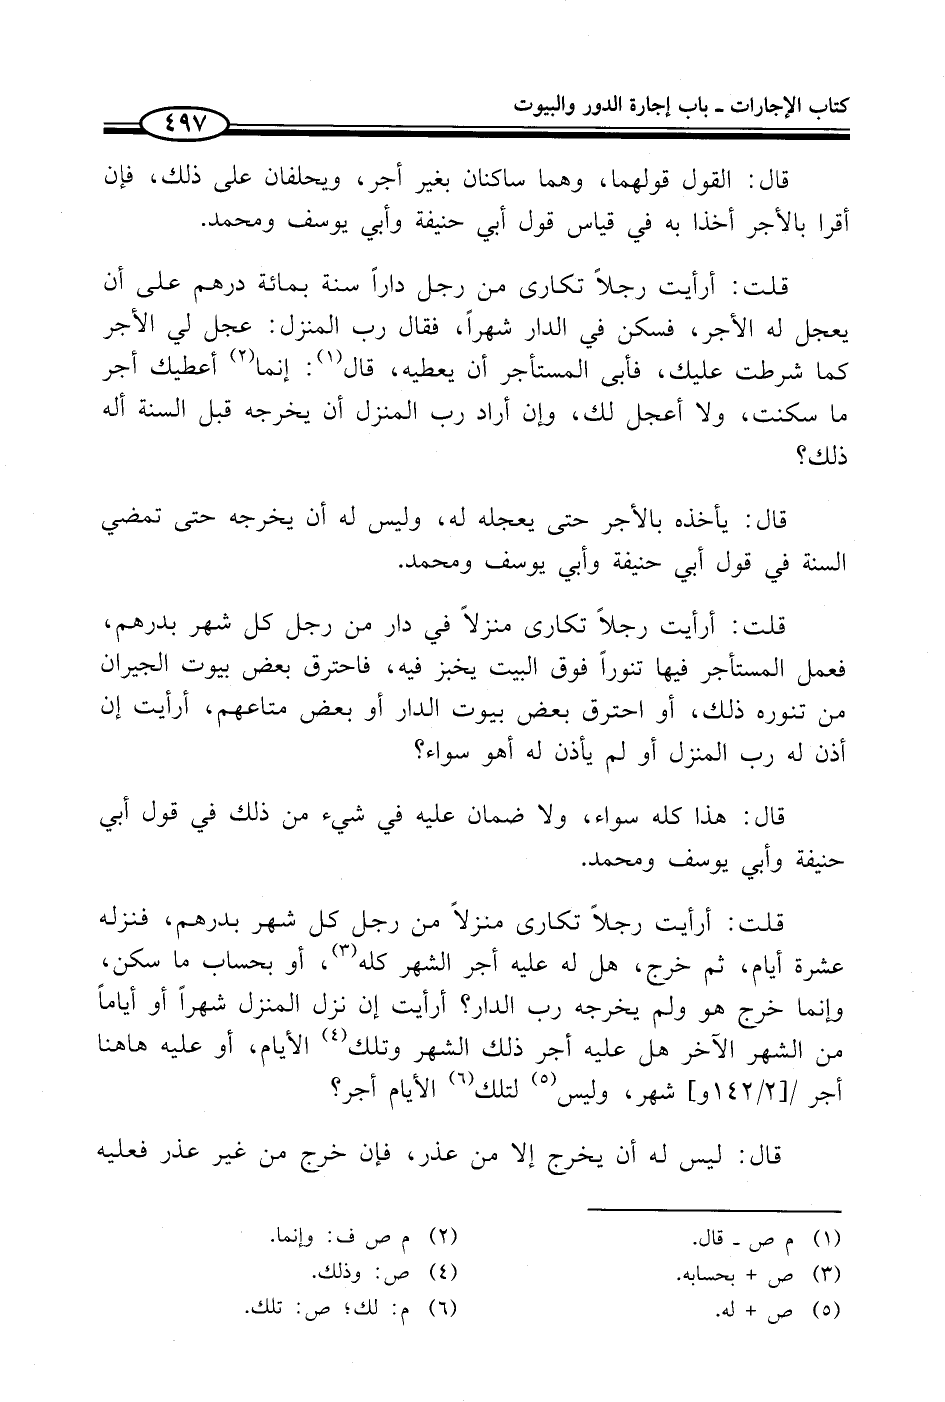 كتاب الإجارات - باب إجارة الدور والبيوت
٤٩٧
قال: القول قولهما، وهما ساكنان بغير أجر، ويحلفان على ذلك، فإن
أقرا بالأجر أخذا به في قياس قول أبي حنيفة وأبي يوسف ومحمد.
قلت: أرأيت رجلاً تكارى من رجل داراً سنة بمائة درهم على أن
يعجل له الأجر، فسكن في الدار شهراً، فقال رب المنزل: عجل لي الأجر
كما شرطت عليك، فأبى المستأجر أن يعطيه، قال(١): إنما(٢) أعطيك أجر
ما سكنت، ولا أعجل لك، وإن أراد رب المنزل أن يخرجه قبل السنة أله
ذلك؟
قال: يأخذه بالأجر حتى يعجله له، وليس له أن يخرجه حتى تمضي
السنة في قول أبي حنيفة وأبي يوسف ومحمد.
قلت: أرأيت رجلاً تكارى منزلاً في دار من رجل كل شهر بدرهم،
فعمل المستأجر فيها تنوراً فوق البيت يخبز فيه، فاحترق بعض بيوت الجيران
من تنوره ذلك، أو احترق بعض بيوت الدار أو بعض متاعهم، أرأيت إن
أذن له رب المنزل أو لم يأذن له أهو سواء؟
قال: هذا كله سواء، ولا ضمان عليه في شيء من ذلك في قول أبي
حنيفة وأبي يوسف ومحمد.
قلت: أرأيت رجلاً تكارى منزلاً من رجل كل شهر بدرهم، فنزله
عشرة أيام، ثم خرج، هل له عليه أجر الشهر كله(٣)، أو بحساب ما سكن،
وإنما خرج هو ولم يخرجه رب الدار؟ أرأيت إن نزل المنزل شهراً أو أياماً
من الشهر الآخر هل عليه أجر ذلك الشهر وتلك(٤) الأيام، أو عليه هاهنا
أجر /[١٤٢/٢و] شهر، وليس(٥) لتلك(٦) الأيام أجر؟
قال: ليس له أن يخرج إلا من عذر، فإن خرج من غير عذر فعليه
(١) م ص - قال.
(٢) م ص ف: وإنما.
(٣) ص + بحسابه.
(٤) ص: وذلك.
(٥) ص + له.
(٦) م: لك؛ ص: تلك.